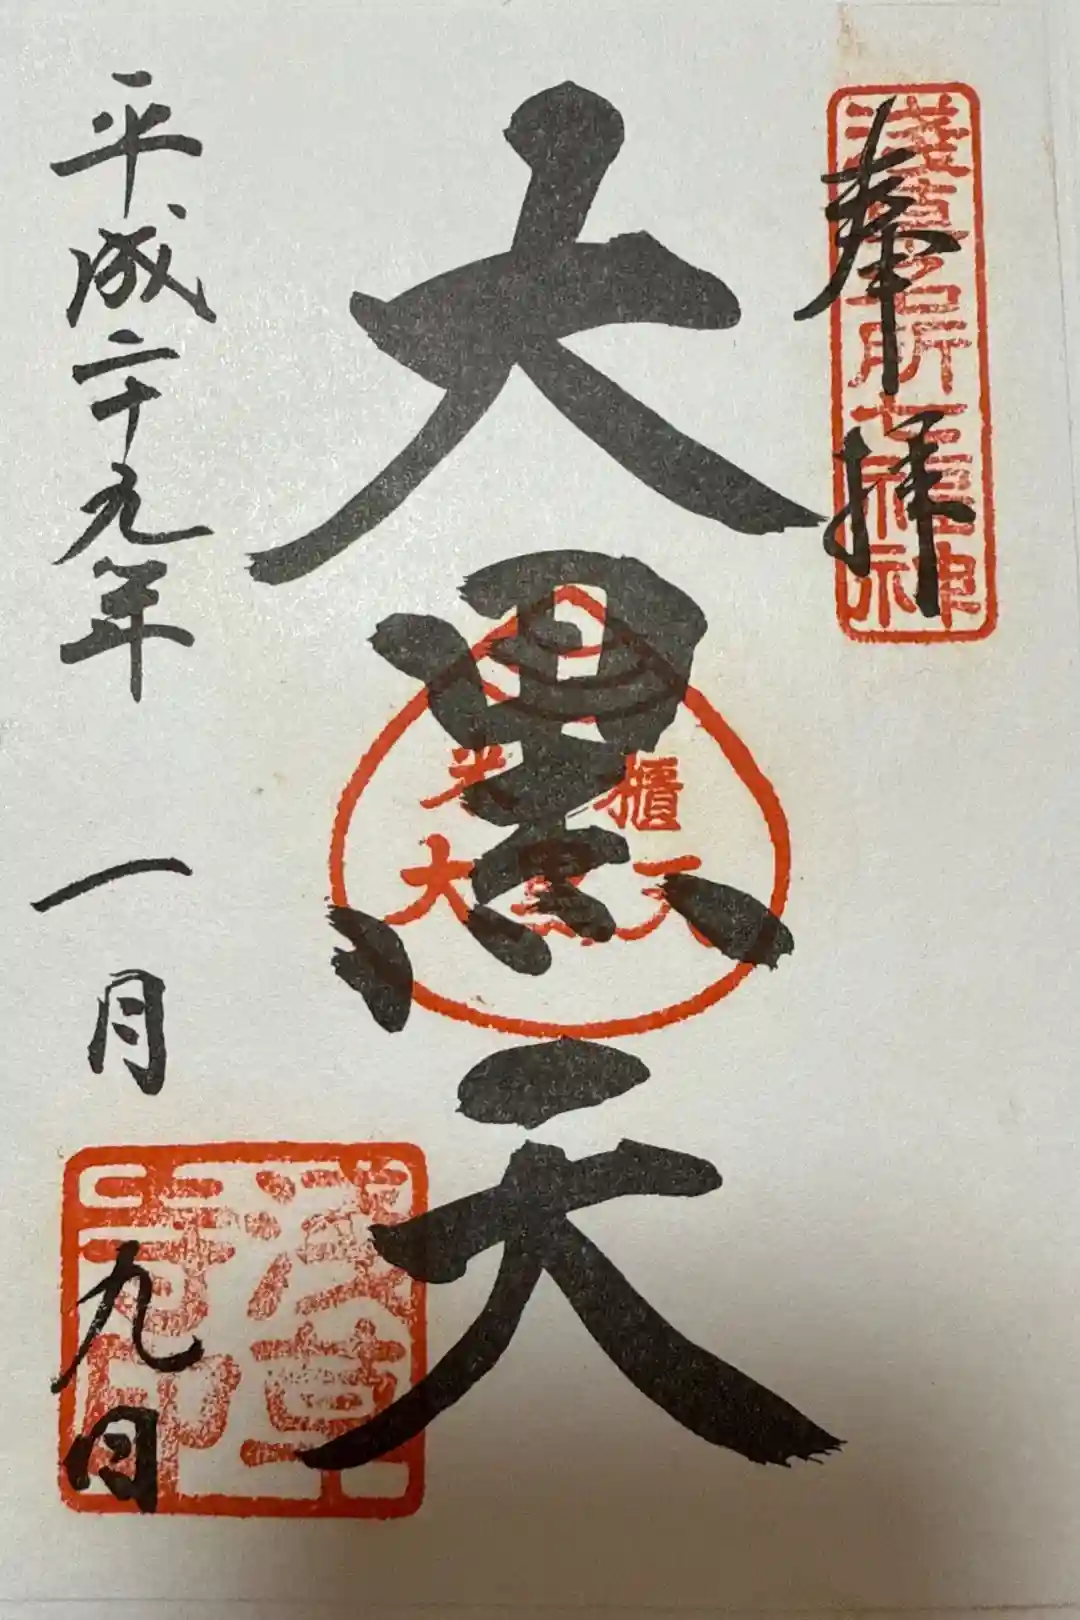 奉拝
淺草名所七福神
大黒天
米櫃
大黒天
平成二十九年一月九日
浅草寺印